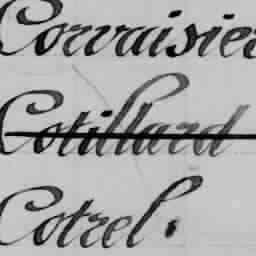 Corvaisier
Cotillard
Cotrel.